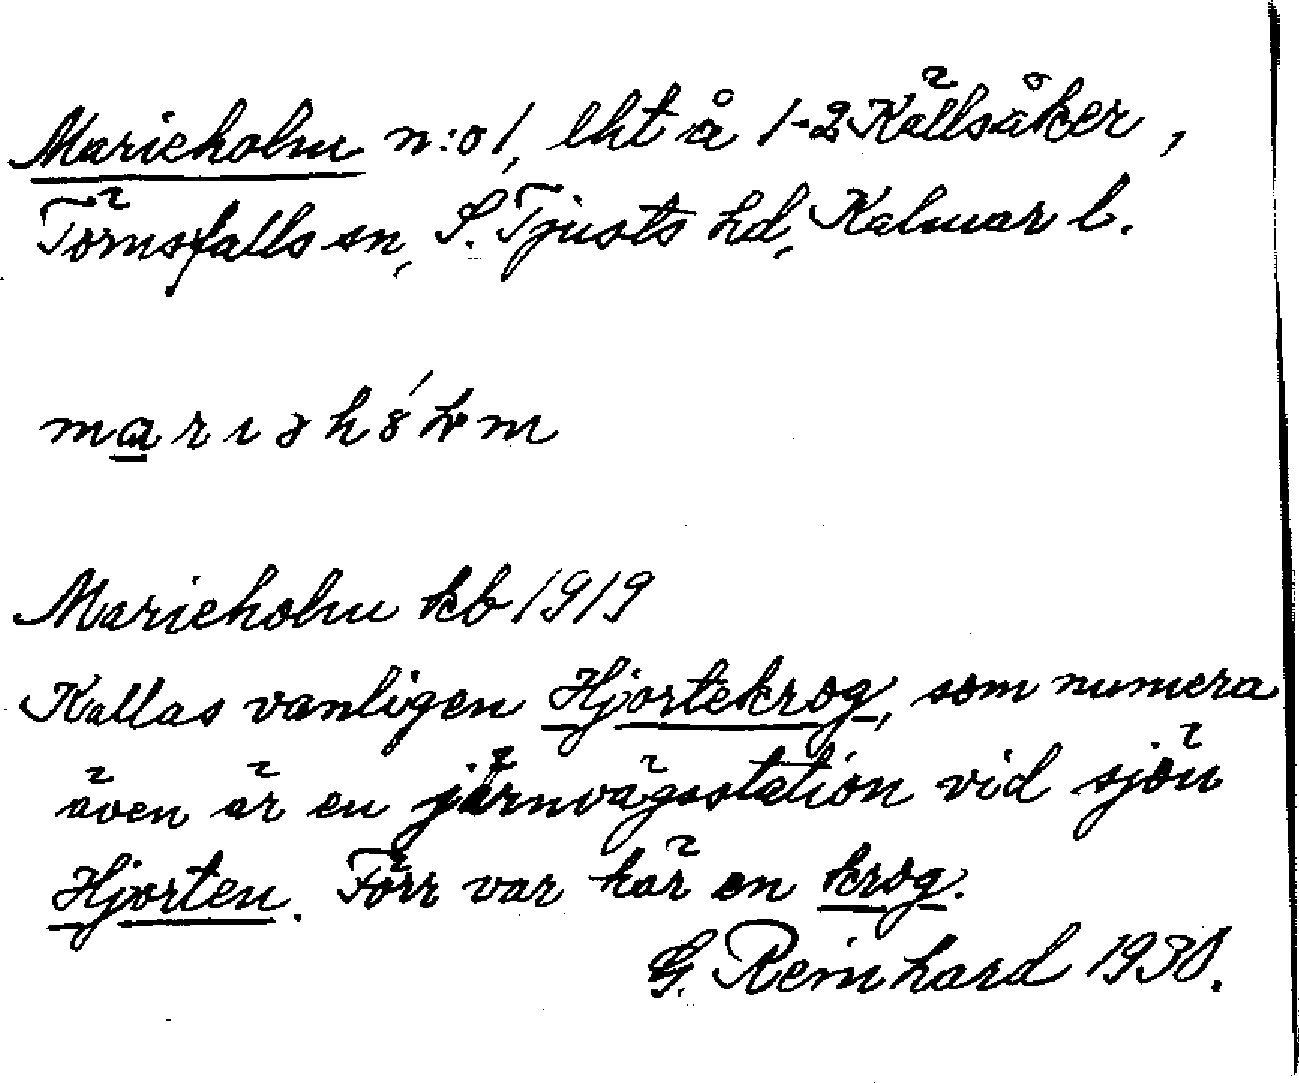 Marieholm n:o 1, lht å 1-2 Källsåker,
Törnsfalls sn, S. Tjusts hd, Kalmar l.
marıəhȣ́ɫm
Marieholm kb 1919
Kallas vanligen Hjortekrog, som numera
även är en järnvägsstation vid sjön
Hjorten. Förr var här en krog.
G. Reinhard 1930.